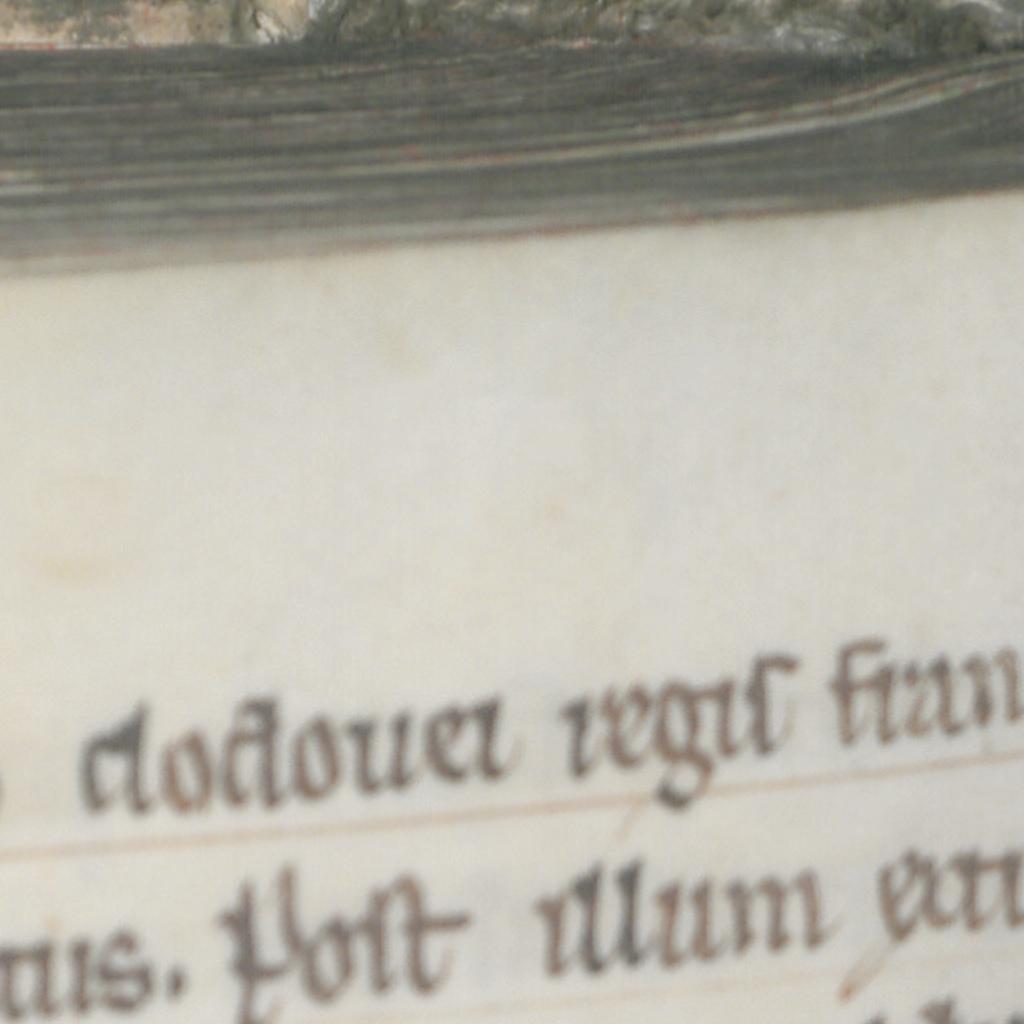 clodouei regis fran
tus. Post illum